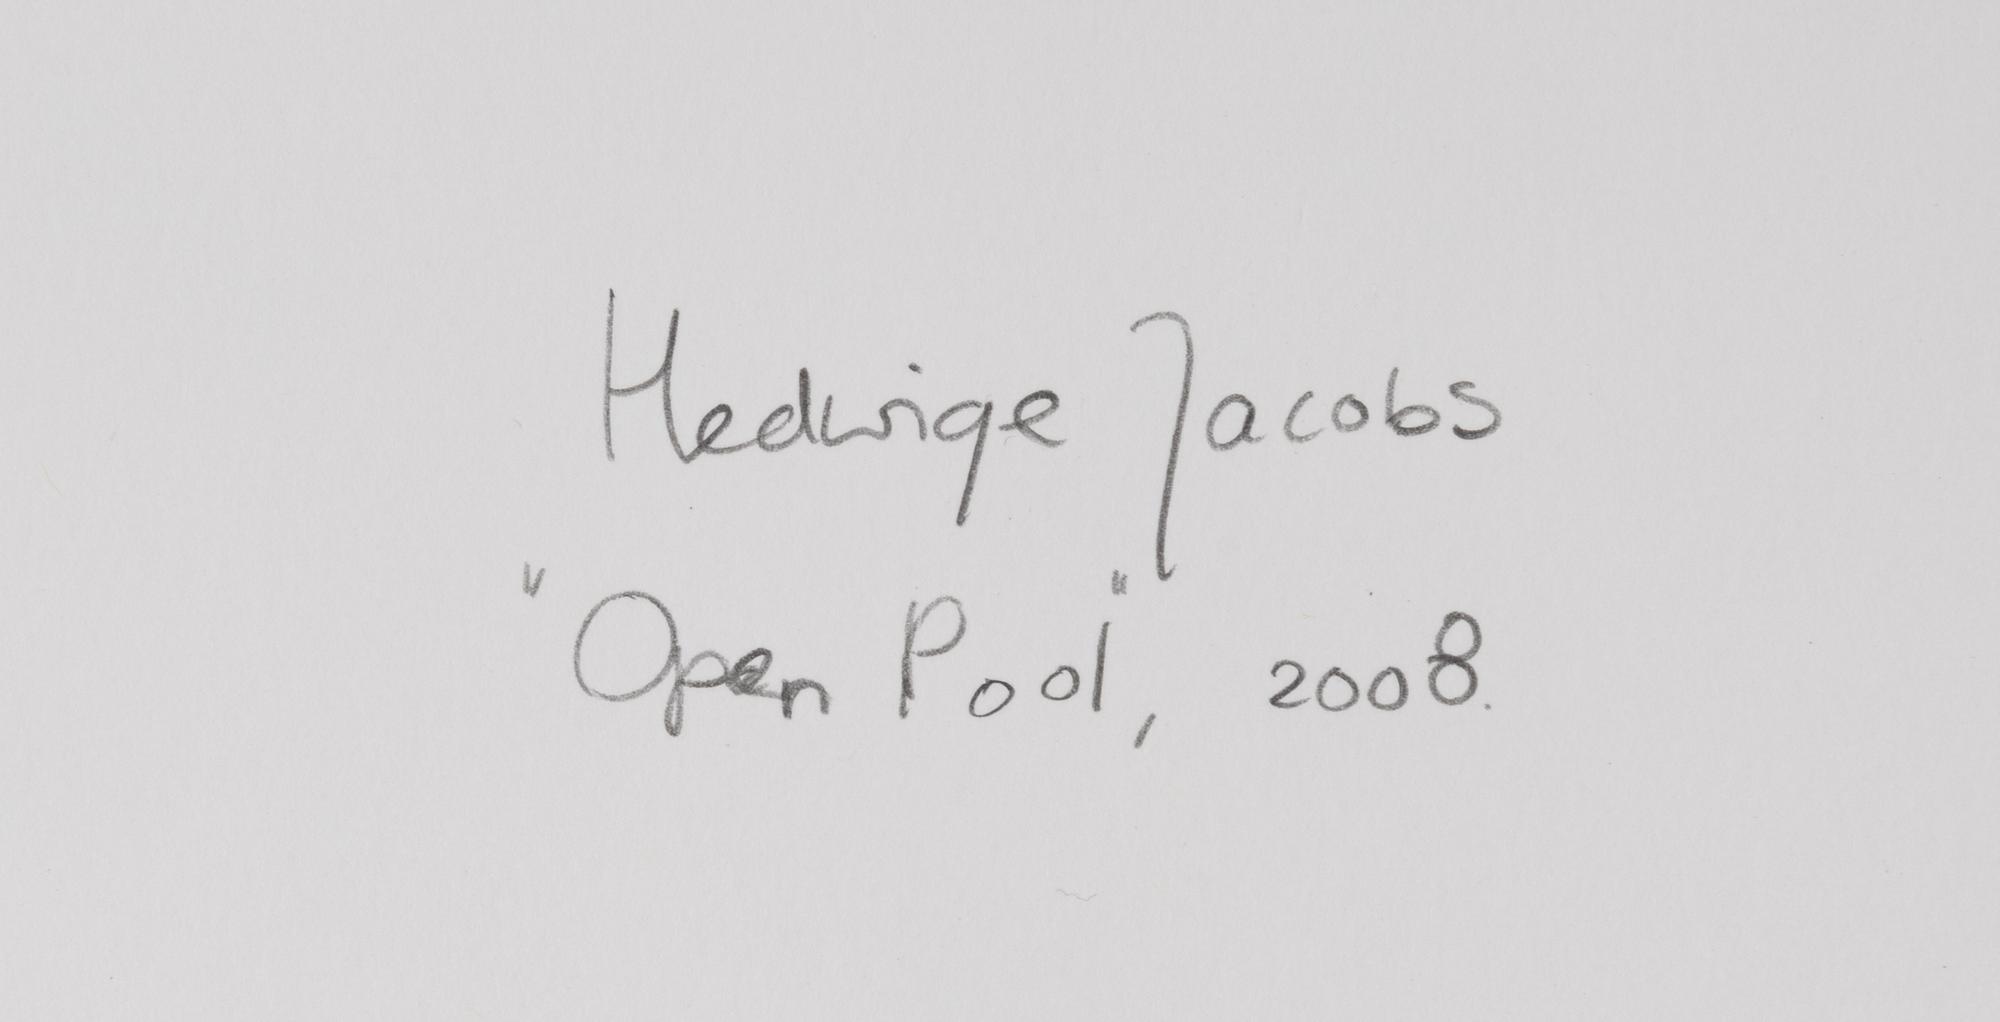 Hedwige Jacobs
"Open Pool", 2008.